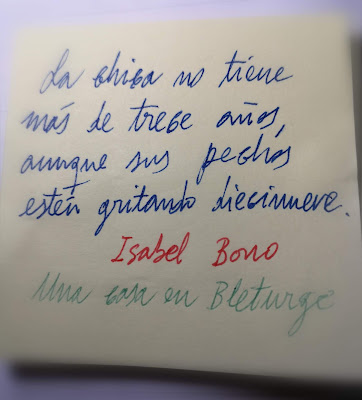 La chica no tiene
más de trece años,
aunque sus pechos
estén gritando diecinueve.
Isabel Bono
Una casa en Bleturge